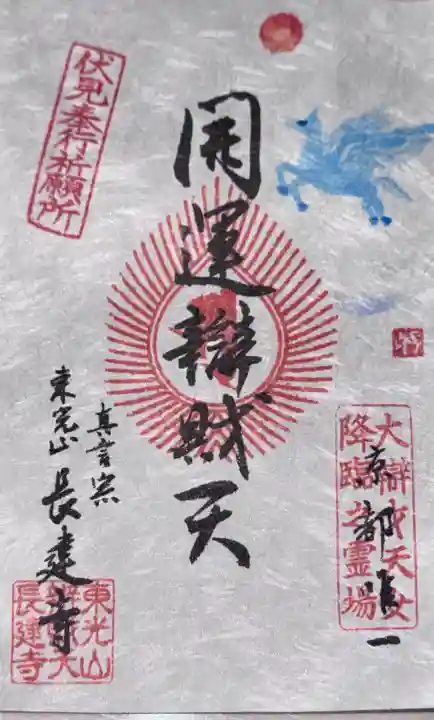 京都唯一
大辯才天女
降臨之霊場
開運辯財天
伏見奉行祈願所
真言宗
東光山 長建寺
東光山
辯財天
長建寺